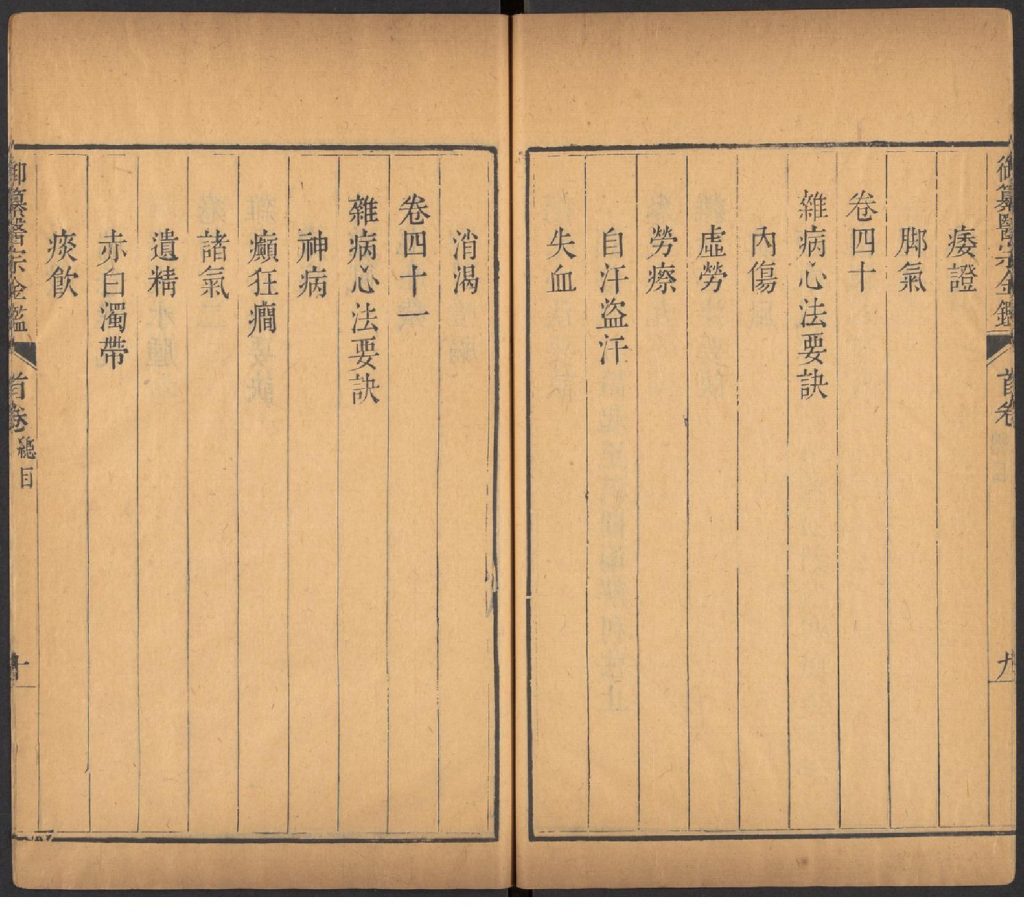 御纂醫宗金鑑
首卷
九
痿證
脚氣
卷四十
雜病心法要訣
內傷
虛勞
勞瘵
自汗盜汗
失血
消渴
卷四十一
雜病心法要訣
神病
癲狂癎
諸氣
遺精
赤白濁帶
痰飲
御纂醫宗金鑑
首卷
總目
十